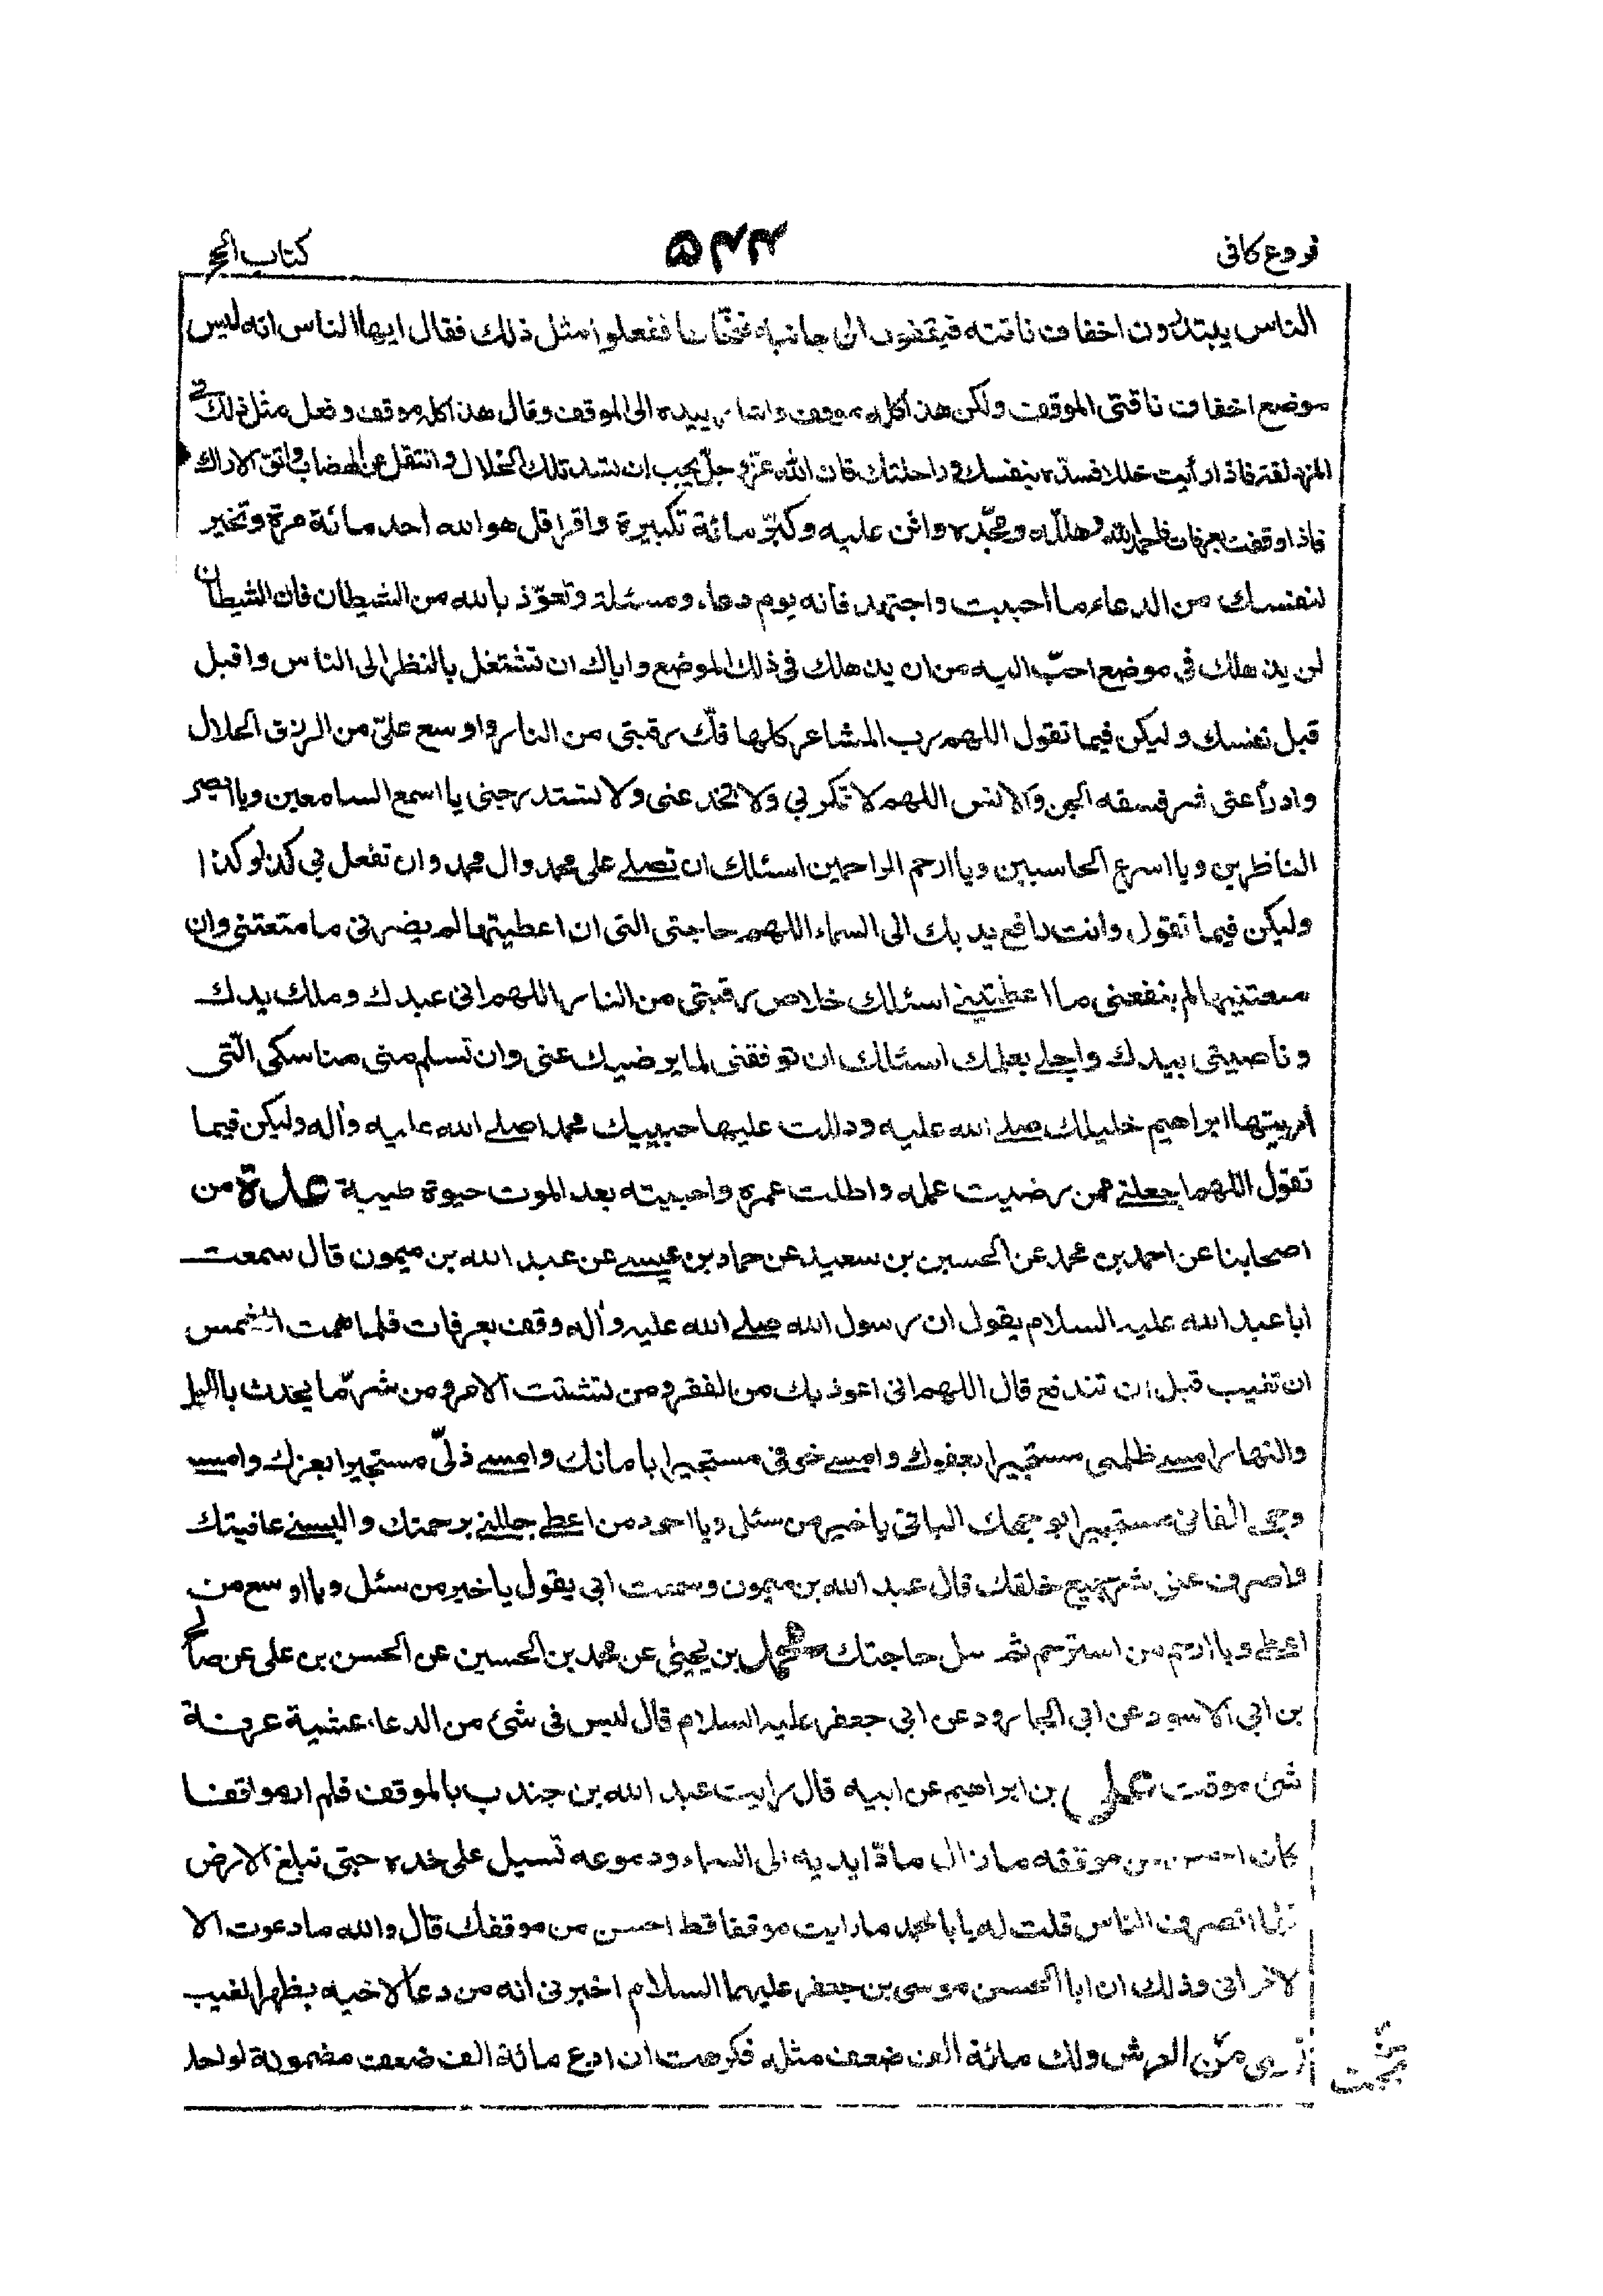 فروع كافى
۵۴۴
كتاب الحج
الناس يبتدرون اخفاف ناقته فيقفون الى جانبها فنحّاها ففعلوا مثل ذلك فقال ايها الناس انه ليس
موضع اخفاف ناقتى الموقف ولكن هذا كله موقف واشار بيده الى الموقف وقال هذا كله موقف وفعل مثل ذلك فى
المزدلفة فاذا رأيت خللا فسدّه بنفسك وراحلتك فان الله عزّ وجلّ يحب ان تسد تلك الخلال وانتقل عن الهضاب واتق الاراك
فاذا وقفت بعرفات فاحمد الله وهلّله ومجّده واثن عليه وكبّر مائة تكبيرة واقرا قل هو الله احد مائة مرة وتخير
لنفسك من الدعاء ما احببت واجتهد فانه يوم دعاء ومسئلة وتعوّذ بالله من الشيطان فان الشيطان
لن يذهلك فى موضع احبّ اليه من ان يذهلك فى ذلك الموضع واياك ان تشتغل بالنظر الى الناس واقبل
قبل نفسك وليكن فيما تقول اللهم رب المشاعر كلها فكّ رقبتى من النار واوسع علىّ من الرزق الحلال
وادرأ عنى شر فسقه الجن والانس اللهم لا تمكر بي ولا تخدعنى ولا تستدرجنى يا اسمع السامعين ويا ابصر
الناظرين ويا اسرع الحاسبين ويا ارحم الراحمين اسئلك ان تصلے على محمد وال محمد وان تفعل بي كذا وكذا
وليكن فيما تقول وانت رافع يديك الى السماء اللهم حاجتى التى ان اعطيتها لم يضرنى ما منعتنى وان
منعتنيها لم ينفعنى ما اعطيتنے اسئلك خلاص رقبتى من النار اللهم انى عبدك وملك يدك
وناصيتى بيدك واجلے بعلمك اسئلك ان توفقنى لما يرضيك عنى وان تسلم منى مناسكى الّتى
أريتها ابراهيم خليلك صلے الله عليه ودللت عليها حبيبك محمدا صلے الله عليه وآله وليكن فيما
تقول اللهم اجعلنے ممن رضيت عمله واطلت عمره واحييته بعد الموت حيوة طيبة عدة من
اصحابنا عن احمد بن محمد عن الحسين بن سعيد عن حماد بن عيسے عن عبد الله بن ميمون قال سمعت
ابا عبد الله عليه السلام يقول ان رسول الله صلے الله عليه وآله وقف بعرفات فلما همت الشمس
ان تغيب قبل ان تندفع قال اللهم انى اعوذ بك من الفقر ومن تشتت الامر ومن شر ما يحدث بالليل
والنهار امسے ظلمى مستجيرا بعفوك وامسے خوفى مستجيرا بامانك وامسے ذلّى مستجيرا بعزك وامسے
وجهى الفانى مستجيرا بوجهك الباقى يا خير من سئل ويا اجود من اعطے جللنے برحمتك والبسنے عافيتك
واصرف عنى شر جميع خلقك قال عبد الله بن ميمون وسمعت ابي يقول يا خير من سئل ويا اوسع من
اعطے ويا ارحم من استرحم ثم سل حاجتك محمد بن يحيى عن محمد بن الحسين عن الحسن بن على عن صالح
بن ابي الاسود عن ابي الجارود عن ابي جعفر عليه السلام قال ليس فى شئ من الدعاء عشية عرفة
شئ موقت على بن ابراهيم عن ابيه قال رايت عبد الله بن جندب بالموقف فلم ار موقفا
كان احسن من موقفه ما زال مادّا يديه الى السماء ودموعه تسيل على خده حتى تبلغ الارض
فلما انصرف الناس قلت له يا ابا محمد ما رايت موقفا قط احسن من موقفك قال والله ما دعوت الا
لاخوانى وذلك ان ابا الحسن موسى بن جعفر عليهما السلام اخبرنى انه من دعا لاخيه بظهر الغيب
نودى من العرش ولك مائة الف ضعف مثله فكرهت ان ادع مائة الف ضعف مضمونة لواحد